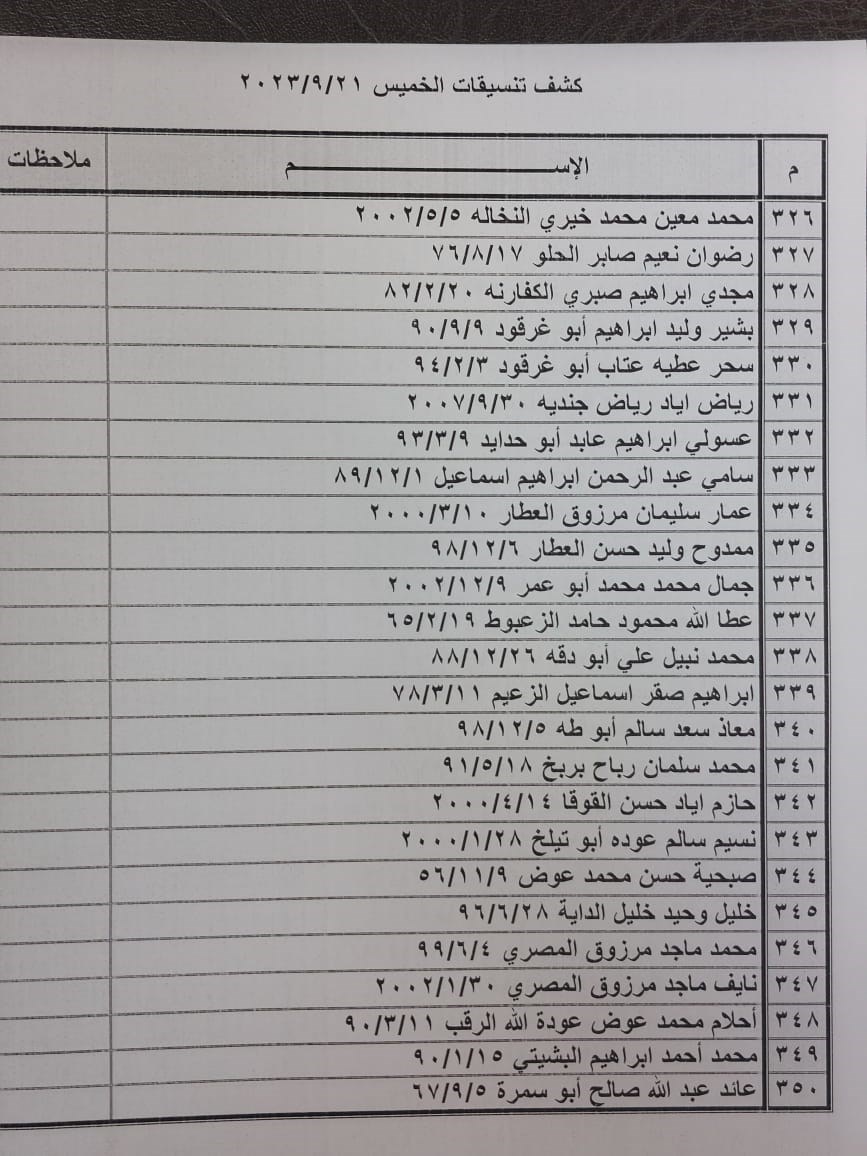 كشف تنسيقات الخميس ٢٠٢٣/٩/٢١
م الإســـم ملاحظات
٣٢٦ محمد معين محمد خيري النخاله ٢٠٠٢/٥/٥
٣٢٧ رضوان نعيم صابر الحلو ٧٦/٨/١٧
٣٢٨ مجدي ابراهيم صبري الكفارنه ٨٢/٢/٢٠
٣٢٩ بشير وليد ابراهيم أبو غرقود ٩٠/٩/٩
٣٣٠ سحر عطيه عتاب أبو غرقود ٩٤/٢/٣
٣٣١ رياض اياد رياض جنديه ٢٠٠٧/٩/٣٠
٣٣٢ عسولي ابراهيم عابد أبو حدايد ٩٣/٣/٩
٣٣٣ سامي عبد الرحمن ابراهيم اسماعيل ٨٩/١٢/١
٣٣٤ عمار سليمان مرزوق العطار ٢٠٠٠/٣/١٠
٣٣٥ ممدوح وليد حسن العطار ٩٨/١٢/٦
٣٣٦ جمال محمد محمد أبو عمر ٢٠٠٢/١٢/٩
٣٣٧ عطا الله محمود حامد الزعبوط ٦٥/٢/١٩
٣٣٨ محمد نبيل علي أبو دقه ٨٨/١٢/٢٦
٣٣٩ ابراهيم صقر اسماعيل الزعيم ٧٨/٣/١١
٣٤٠ معاذ سعد سالم أبو طه ٩٨/١٢/٥
٣٤١ محمد سلمان رباح بربخ ٩١/٥/١٨
٣٤٢ حازم اياد حسن القوقا ٢٠٠٠/٤/١٤
٣٤٣ نسيم سالم عوده أبو تيلخ ٢٠٠٠/١/٢٨
٣٤٤ صبحية حسن محمد عوض ٥٦/١١/٩
٣٤٥ خليل وحيد خليل الداية ٩٦/٦/٢٨
٣٤٦ محمد ماجد مرزوق المصري ٩٩/٦/٤
٣٤٧ نايف ماجد مرزوق المصري ٢٠٠٢/١/٣٠
٣٤٨ أحلام محمد عوض عودة الله الرقب ٩٠/٣/١١
٣٤٩ محمد أحمد ابراهيم البشيتي ٩٠/١/١٥
٣٥٠ عائد عبد الله صالح أبو سمرة ٦٧/٩/٥